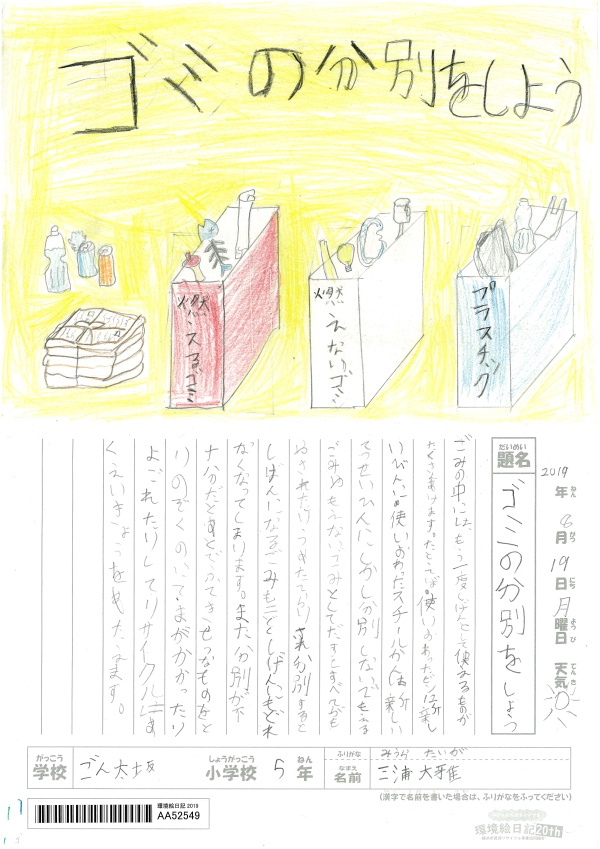 ゴミの分別をしよう
燃えるゴミ
燃えないゴミ
プラスチック
2019年8月19日月曜日 天気
ねん がつ にち ようび てんき
だいめい
題名 ゴミの分別をしよう
ごみの中には、もう一度しげんとして使えるものが
たくさんあります。たとえば使いおわったビンは新し
いびんに。使いおわったスチールかんは新しい
てっせいひんに
しかし分別しないでもえる
ごみやもえないごみとしてだすとすべても
やされたり
分別すると
しげんになるごみも二どとしげんにもどれ
なくなってしまいます。また分別がふ
十分だと
ふてきせつなものをと
りのぞくのに
じかんがかかったり
よごれたりしてリサイクルにま
くえいきょうをあたえます。
がっこう しょうがっこう ねん ふりがな みうら たいが
学校 ごん太坂 小学校 5年 なまえ 名前 三浦 大雅
(漢字で名前を書いた場合は、ふりがなをふってください)
環境絵日記 2019
AA52549
環境絵日記 20th